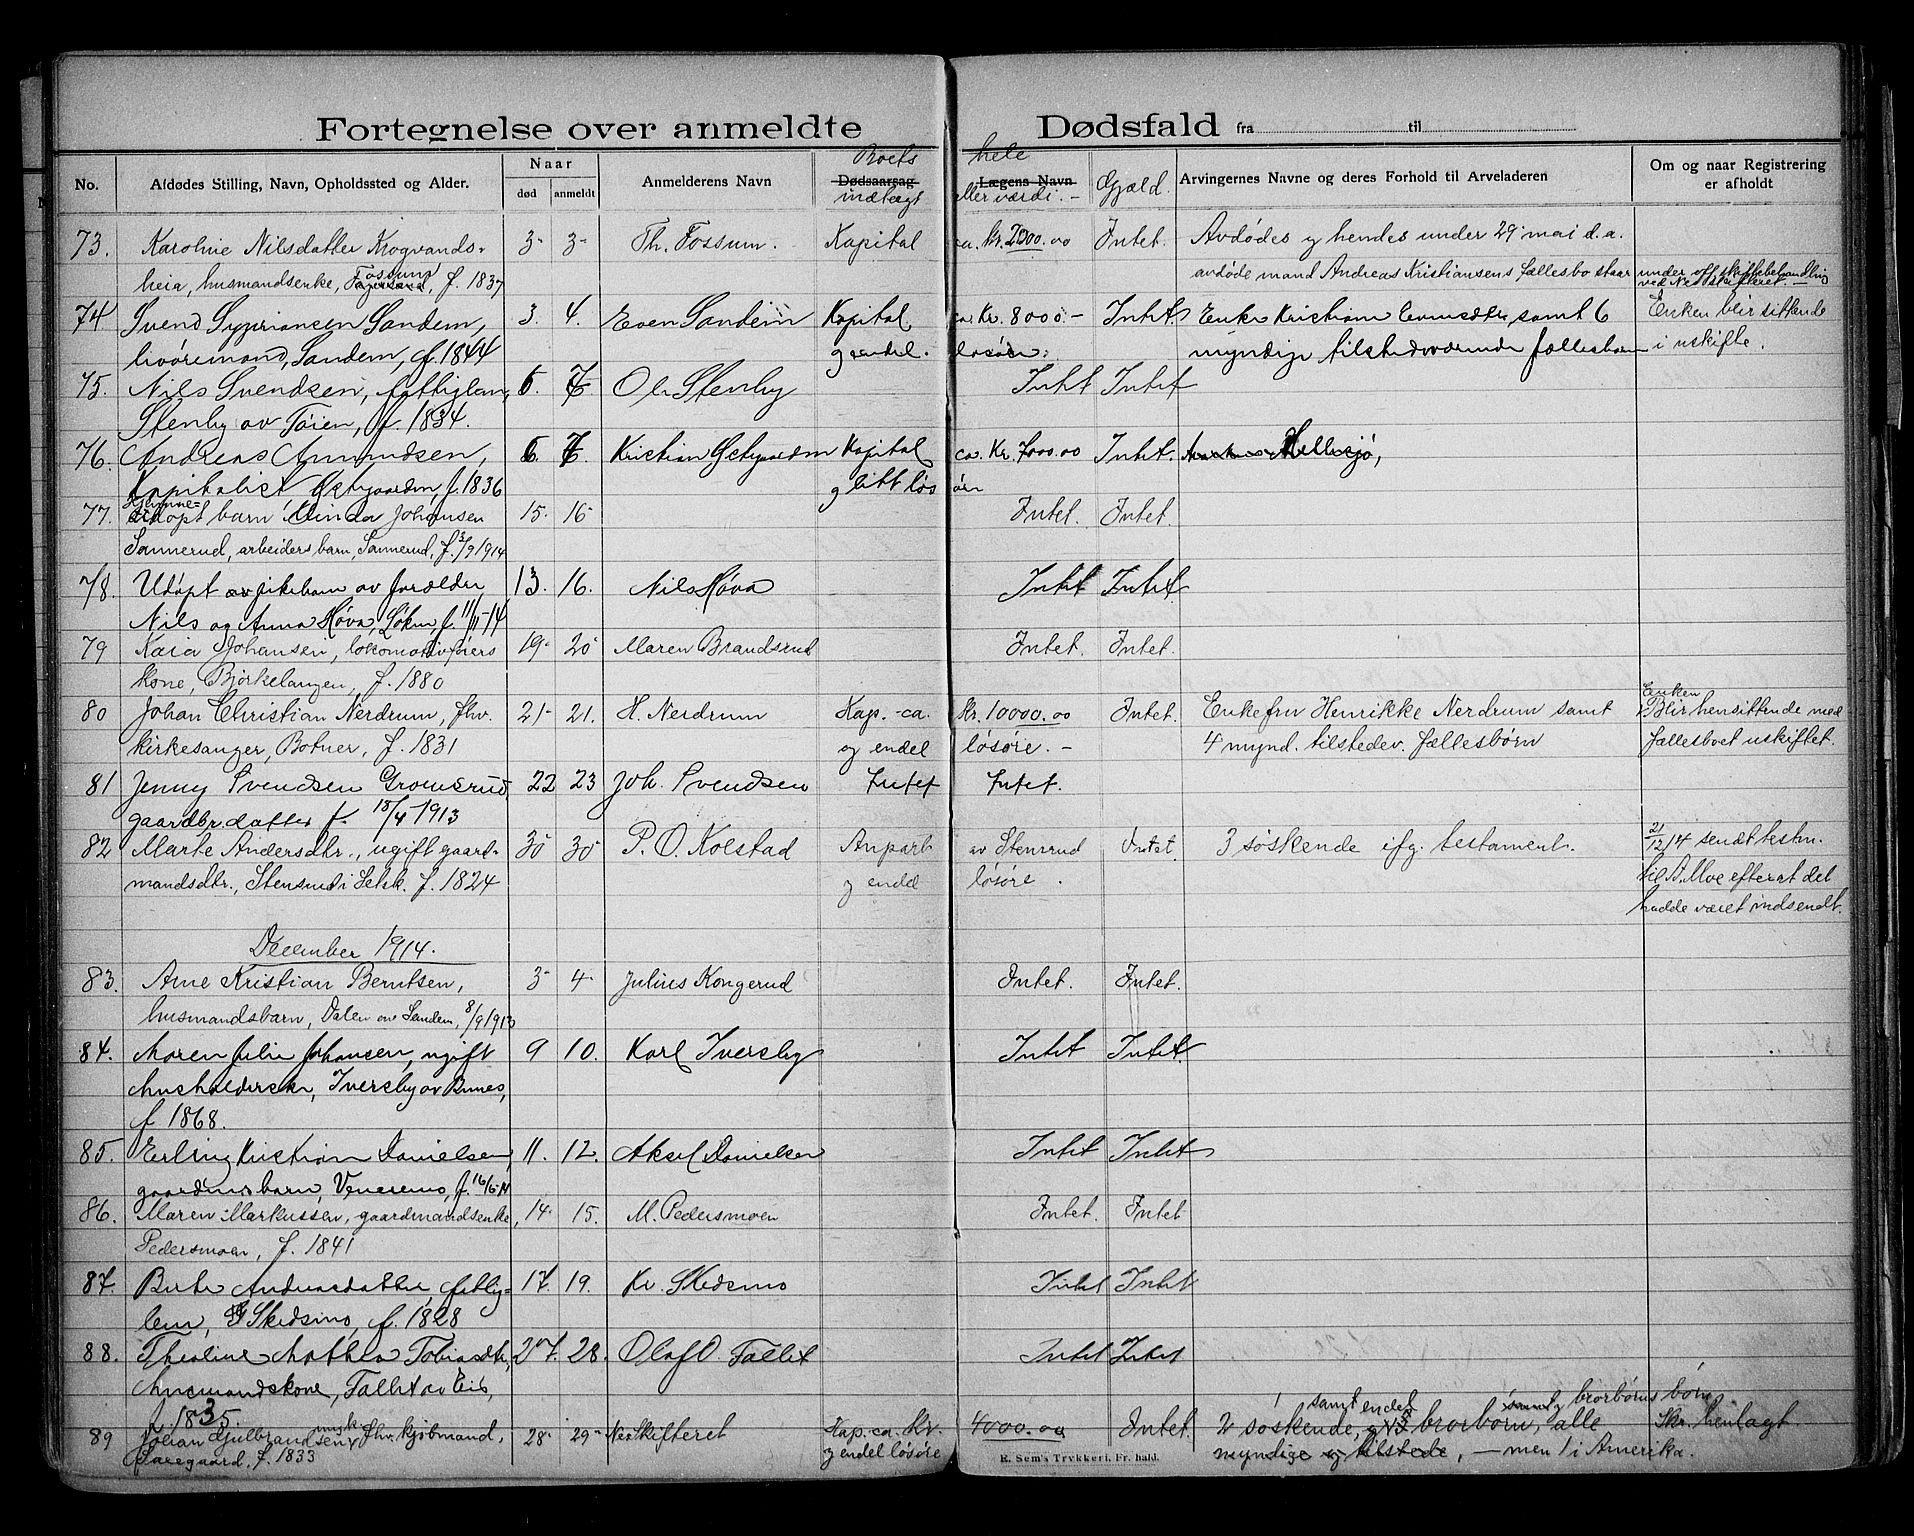 Fortegnelse over anmeldte Dødsfald fra til
No. Afdødes Stilling, Navn, Opholdssted og Alder. Naar død anmeldt Anmelderens Navn Dødsaarsag Boets indtægt Lægens Navn hele eller værdi.- Gjæld. Arvingernes Navne og deres Forhold til Arveladeren Om og naar Registrering er afholdt
73. Karoline Nilsdatter Krogvands- 3 3 Th. Fossum. Kapital ca. kr. 2000.00 Intet. Avdødes og hendes under 29 mai d.a.
heia, husmandsenke, Fossum, f. 1837 avdøde mand Andreas Kristiansens fællesbo staar under off. skiftebehandling
ved Nes skifteret.-
74 Svend Sypriansen Sandem, 3. 4. Even Sandem Kapital ca Kr. 8000.- Intet. Enke Kristiane samt 6 Enken blir sittende
Sandem, f. 1844 og endel. løsøre. myndige tilstedeværende fællesbarn i uskifte.
75. Nils Svendsen, fattiglem, 5. 7. Ole Stenby Intet Intet
Stenby av Töien, f. 1834.
76. Andreas Amundsen, 6. 7. Kristian Kapital ca. Kr. 7000.00 Intet. Hellesjø,
Kapitalist f. 1836 og litt løsøre
77. Hjemme-
døpt barn Minda Johansen 15. 16 Intet. Intet.
Sannerud, arbeiders barn, Sannerud, f. 3/9 1914
78. Udøpt pikebarn av forælder 13. 16. Nils Høva Intet Intet.
Nils og Anna Høva, Løken, f. 11/11-14
79 Kaia Johansen, lokomotivføiers 19. 20 Maren Brandsrud Intet. Intet.
kone, Bjørkelangen, f. 1880
80 Johan Christian Nerdrum, fhv. 21 21. H. Nerdrum Kap. - ca. kr. 10000.00 Intet. Enkefru Henrikke Nerdrum samt Enken Blir hensittende med
kirkesanger, Botner, f. 1831 og endel løsøre. - 4 mynd. tilstedev. fællesbørn fællesboet uskiftet.
81 Jenny Svendsen Gromsrud, 22 23 Joh. Svendsen Intet Intet.
gaardbr. datter f. 15/4 1913
82 Marte Andersdtr., ugift gaard- 30 30 P. O. Kolstad Anpart av Stensrud Intet. 3 søskende ifg. testament. 21/12 14 sendt testm.
mandsdtr., Stensrud i Setsk. f. 1824 og endel løsøre. til A. Moe efterat det
hadde været indsendt.
December 1914.
83. Arne Kristian Berntsen, 3 4 Julius Kongerud Intet. Intet.
husmandsbarn, Dalen av Sandem, 8/9 1913
84. Maren Julie Johansen, ugift 9 10. Karl Iversby Intet Intet.
husholderske, Iversby av Bunes,
f 1868.
85. Erling Kristian Danielsen, 11. 12. Aksel Danielsen Intet Intet
gaardmsbarn, Veneremo, f. 16/6 14
86. Maren Markussen, gaardmandsenke, 14. 15. M. Pedersmoen Intet. Intet
Pedersmoen, f. 1841
87. Berte Andreasdatter, fattig- 17. 19. Kr. Skedsmo Intet Intet
lem, Skedsmo, f. 1828
88. Theoline Mathea Tobiasdtr, 27. 28. Olaf O. Fallet Intet Intet
husmandskone, Fallet av Eid,
f. 1835. 1 samt endel brorbørns børn
89 Johan Gulbrandsen ungk. fhv. kjøbmand, 28 29 Nes skifteret Kap. ca. kr. 4000.00 Intet. 2 søskende, brorbørn, alle Skr. henlagt
f. 1833 og endel løsøre myndige og tilstede, - men 1 i Amerika.
E. Sem's Trykkeri, Fr. hald.